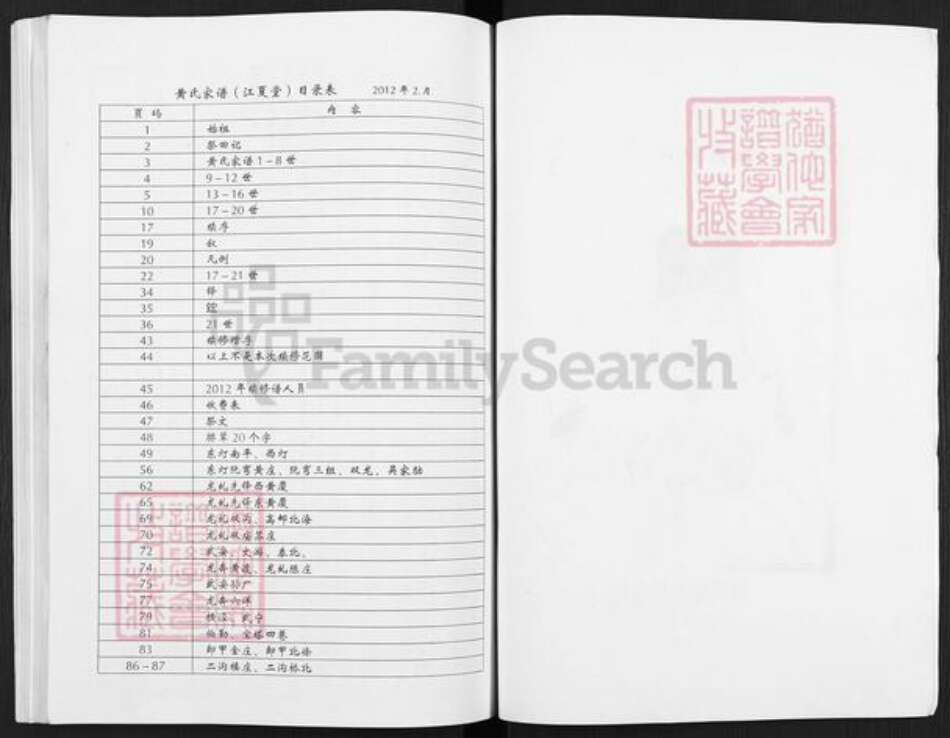 黄氏家谱（江夏堂）目录表 2012年2.月
页码 内 容
1 始祖
2 祭田记
3 黄氏家谱1－8世
4 9－12世
5 13－16世
10 17－20世
17 续序
19 叙
20 凡例
22 17－21世
34
35
36 21世
43 续修谱序
44 以上不是本次续修花圈
45 2012年续修谱人员
46 收费表
47 祭文
48 排辈20个字
49 东灯南平、西灯
56 东灯阮弯黄庄、阮弯三组、双龙、吴家
62 龙虬先锋西黄厦
65 龙虬先锋东黄厦
69 龙虬 、高邮北海
70 龙虬 庄
72 武安、 、秦北、
74 龙奔黄 、龙虬张庄
75 武安
77 龙奔六
79
81 伯勤、 四巷
83 卸甲金庄、卸甲北
86－87 二沟 庄、二沟 北
FamilySearch
猶他家
譜學會
收藏